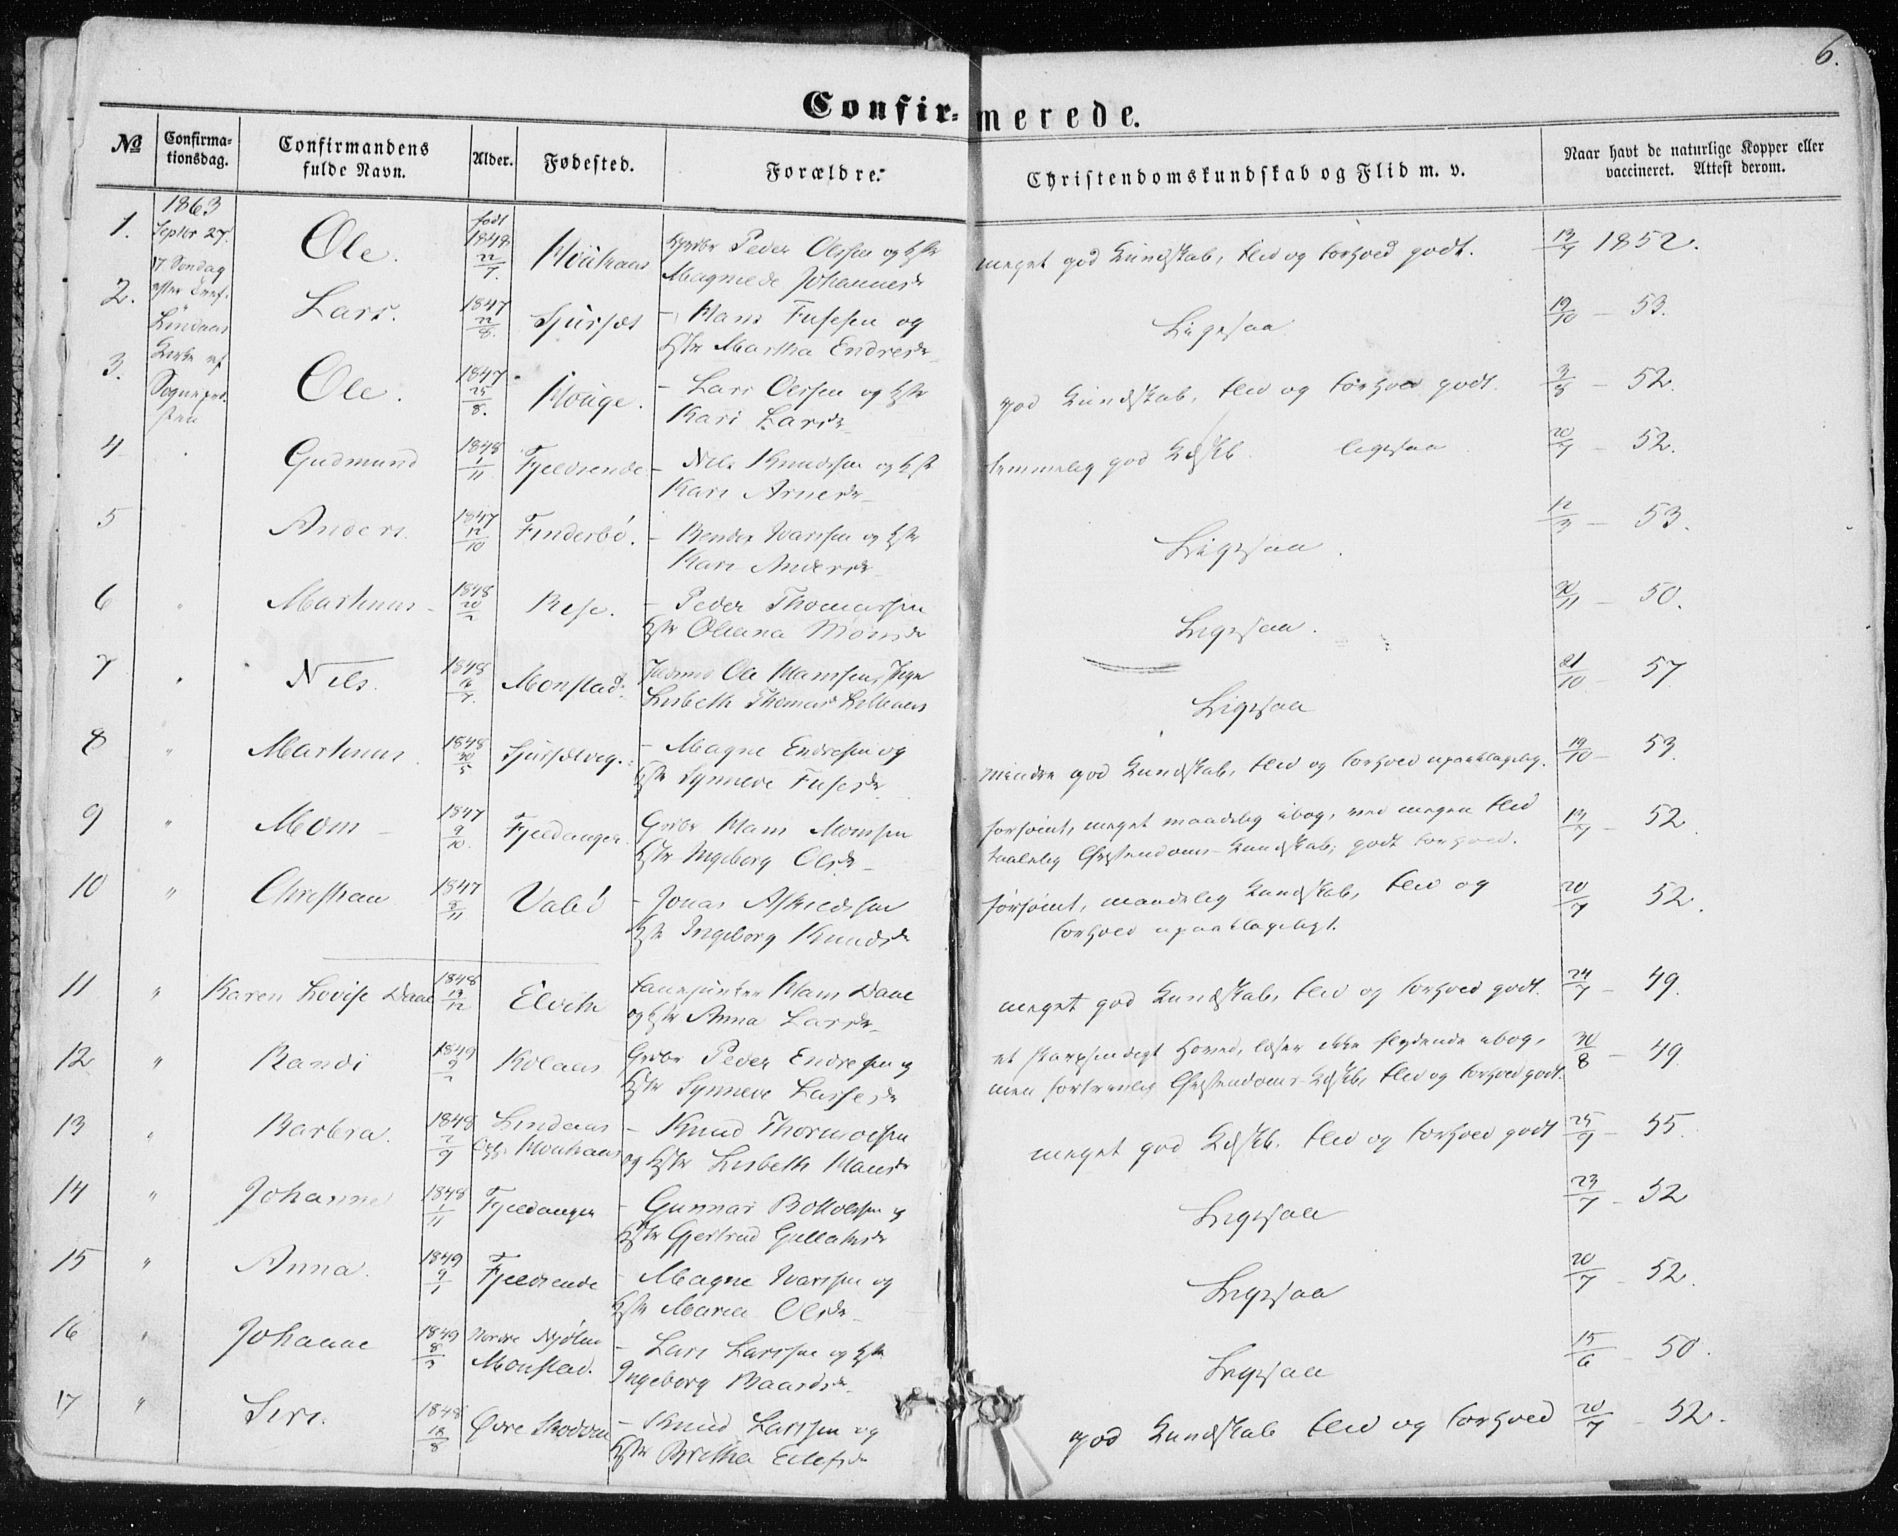 6.
Confirmerede.
No
Confirmationsdag.
Confirmandens fulde Navn.
Alder.
Fødested.
Forældre.
Christendomskundskab og Flid m. v.
Naar havt de naturlige Kopper eller vaccineret. Attest derom.
1863
Septbr 27.
17 Søndag
efter Tref.
Lindaas
Kirke af
Sognepre-
sten
1. Ole. født 1848 22/7. Peder Olssen og Hstr
Magnede Johannesdr
meget god Kundskab, Flid og Forhold godt. 1852.
2. Lars. 1847 22/8. Hans Fusesen og
Hstr Martha Endresdr
Ligesaa 19/10 - 53.
3. Ole. 1847 25/8. Houge. - Lars Olssen og Hstr
Kari Larsdr
god Kundskab, Flid og Forhold godt. 3/8 - 52.
4 Gudmund 1848 1/11 Fjeldsende - Nils Knudssen og Hstr
Kari Arnesdr
temmelig god Kdskb. ligesaa 20/7 - 52.
5 Anders 1847 12/10 Finderbø. - Iversen og Hstr
Kari Andersdr
Ligesaa. 12/3 - 53.
6 " Mathias 1848 20/2 - Peder Thomassen
Hstr Oliana Monsdr
Ligesaa. 30/11 - 50.
7 " Nils. 1848 16/7. Monstad. Ole Hanssen, Pige
Lisbeth Thomasdr
Ligesaa 21/10 - 57
8 " 1848 30/5 - Magne Endresen og
Hstr Synneve Fusesdr
mindre god Kundskab, Flid og Forhold upaaklagelig. 19/10 - 53.
9 " Mons 1847 9/10. Fjeldanger. Grbr Hans Monsen
Hstr Ingeborg Olsdr
forsømt, meget maadelig ibog, med megen Flid
taalelig Christendoms-Kundskab, godt Forhold. 13/7 - 52.
10 " Christian 1847 8/11 Valø - Jonas
Hstr Ingeborg Knudsdr
forsømt, maadelig Kundskab, Flid og
Forhold upaaklageligt. 20/7 52.
11 " Karen Lovise Daae 1848 19/12 Elvik Hans Daae
og Hstr Anna Larsdr
meget god Kundskab, Flid og Forhold godt. 24/7 - 49.
12 " Randi 1849 Kolaas Grbr Peder Endresen og
Hstr Synneve Lassesdr
et skarpsindigt Hoved, læser ikke flydende ibog,
men fortrinlig Christendoms-Kdskb, Flid og Forhold godt. 30/8 - 49
13 " Barbra. 1848 2/9 Lindaas
- Knud Thormodsen
og Hstr Lisbeth Hansdr
meget god Kdskb. Flid og Forhold godt 25/9 - 55.
14 " Johanne 1848 1/11 Fjeldanger - Gunnar Botholfsen og
Hstr Gjertrud Gullaksdr
Ligesaa 23/7 - 52
15 " Anna. 1849 9/1 Fjeldsende - Magne Iversen og
Hstr Maria Olsdr
Ligesaa 20/7 - 52.
16 " Johanne 1849 8/3 Nordre
Monstad. - Lars Larssen og Hstr
Ingeborg Baardsdr
Ligesaa 15/6 - 50.
17 " Siri. 1848 18/8 Øvre - Knud Larssen og
Hstr Britha Eilefsdr
god Kundskab Flid og Forhold 20/7 - 52.